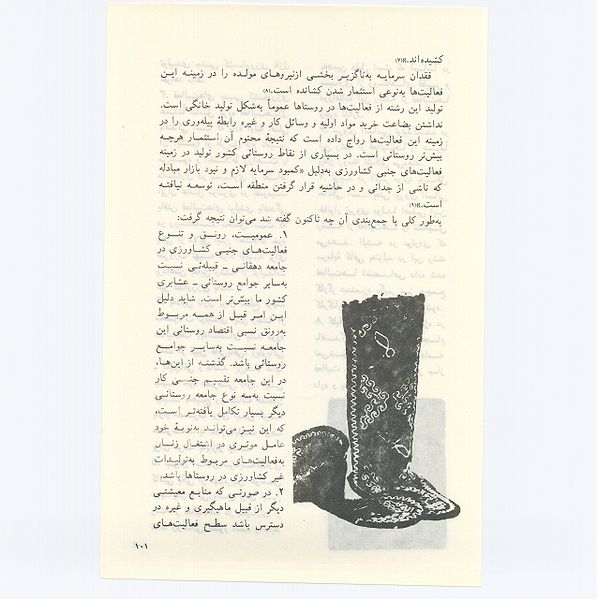 کشیده‌اند.»(۷)
فقدان سرمایه به‌ناگزیر بخشی ازنیروهای مولده را در زمینه این
فعالیت‌ها به‌نوعی استثمار شدن کشانده است.(۸)
تولید این رشته از فعالیت‌ها در روستاها عموماً به‌شکل تولید خانگی است.
نداشتن بضاعت خرید مواد اولیه و وسائل کار و غیره رابطهٔ پیله‌وری را در
زمینه این فعالیت‌ها رواج داده است که نتیجهٔ محتوم آن استثمار هرچه
بیش‌تر روستائی است. در بسیاری از نقاط روستائی کشور تولید در زمینه
فعالیت‌های جنبی کشاورزی به‌دلیل «کمبود سرمایه لازم و نبود بازار مبادله
که ناشی از جدائی و در حاشیه قرار گرفتن منطقه است، توسعه نیافته
است.»(۹)
به‌طور کلی با جمع‌بندی آن چه تاکنون گفته شد می‌توان نتیجه گرفت:
۱. عمومیت، رونق و تنوع
فعالیت‌های جنبی کشاورزی در
جامعه دهقانی ـ قبیله‌ئی نسبت
به‌سایر جوامع روستائی ـ عشایری
کشور ما بیش‌تر است. شاید دلیل
این امر قبل از همه مربوط
به‌رونق نسبی اقتصاد روستائی این
جامعه نسبت به‌سایر جوامع
روستائی باشد. گذشته از این‌ها،
در این جامعه تقسیم جنبی کار
نسبت به‌سه نوع جامعه روستائی
دیگر بسیار تکامل یافته‌تر است،
که این نیز می‌تواند به‌نوبهٔ خود
عامل موثری در اشتغال زنان
به‌فعالیت‌های مربوط به‌تولیدات
غیر کشاورزی در روستاها باشد.
۲. در صورتی که منابع معیشتی
دیگر از قبیل ماهیگیری و غیره در
دسترس باشد سطح فعالیت‌های
۱۰۱